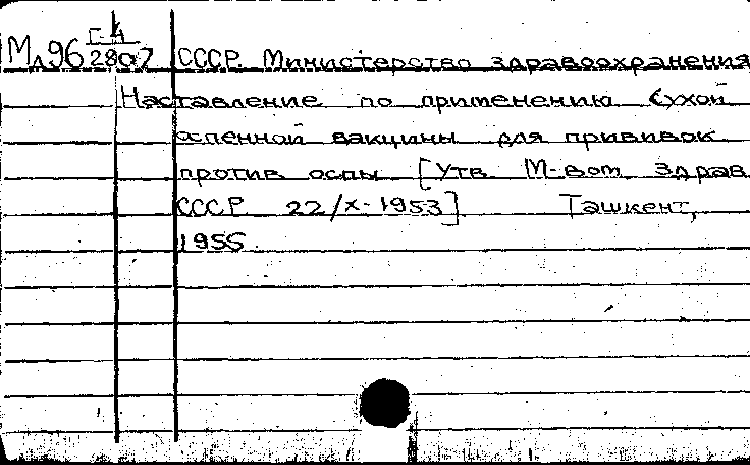 Мл96 Г-4/2807 СССР. Министерство здравоохранения
Наставление по применению сухой
оспенной вакцины для прививок
против оспы [Утв. М-вом здрав.
СССР 22/X-1953]. Ташкент,
1955.